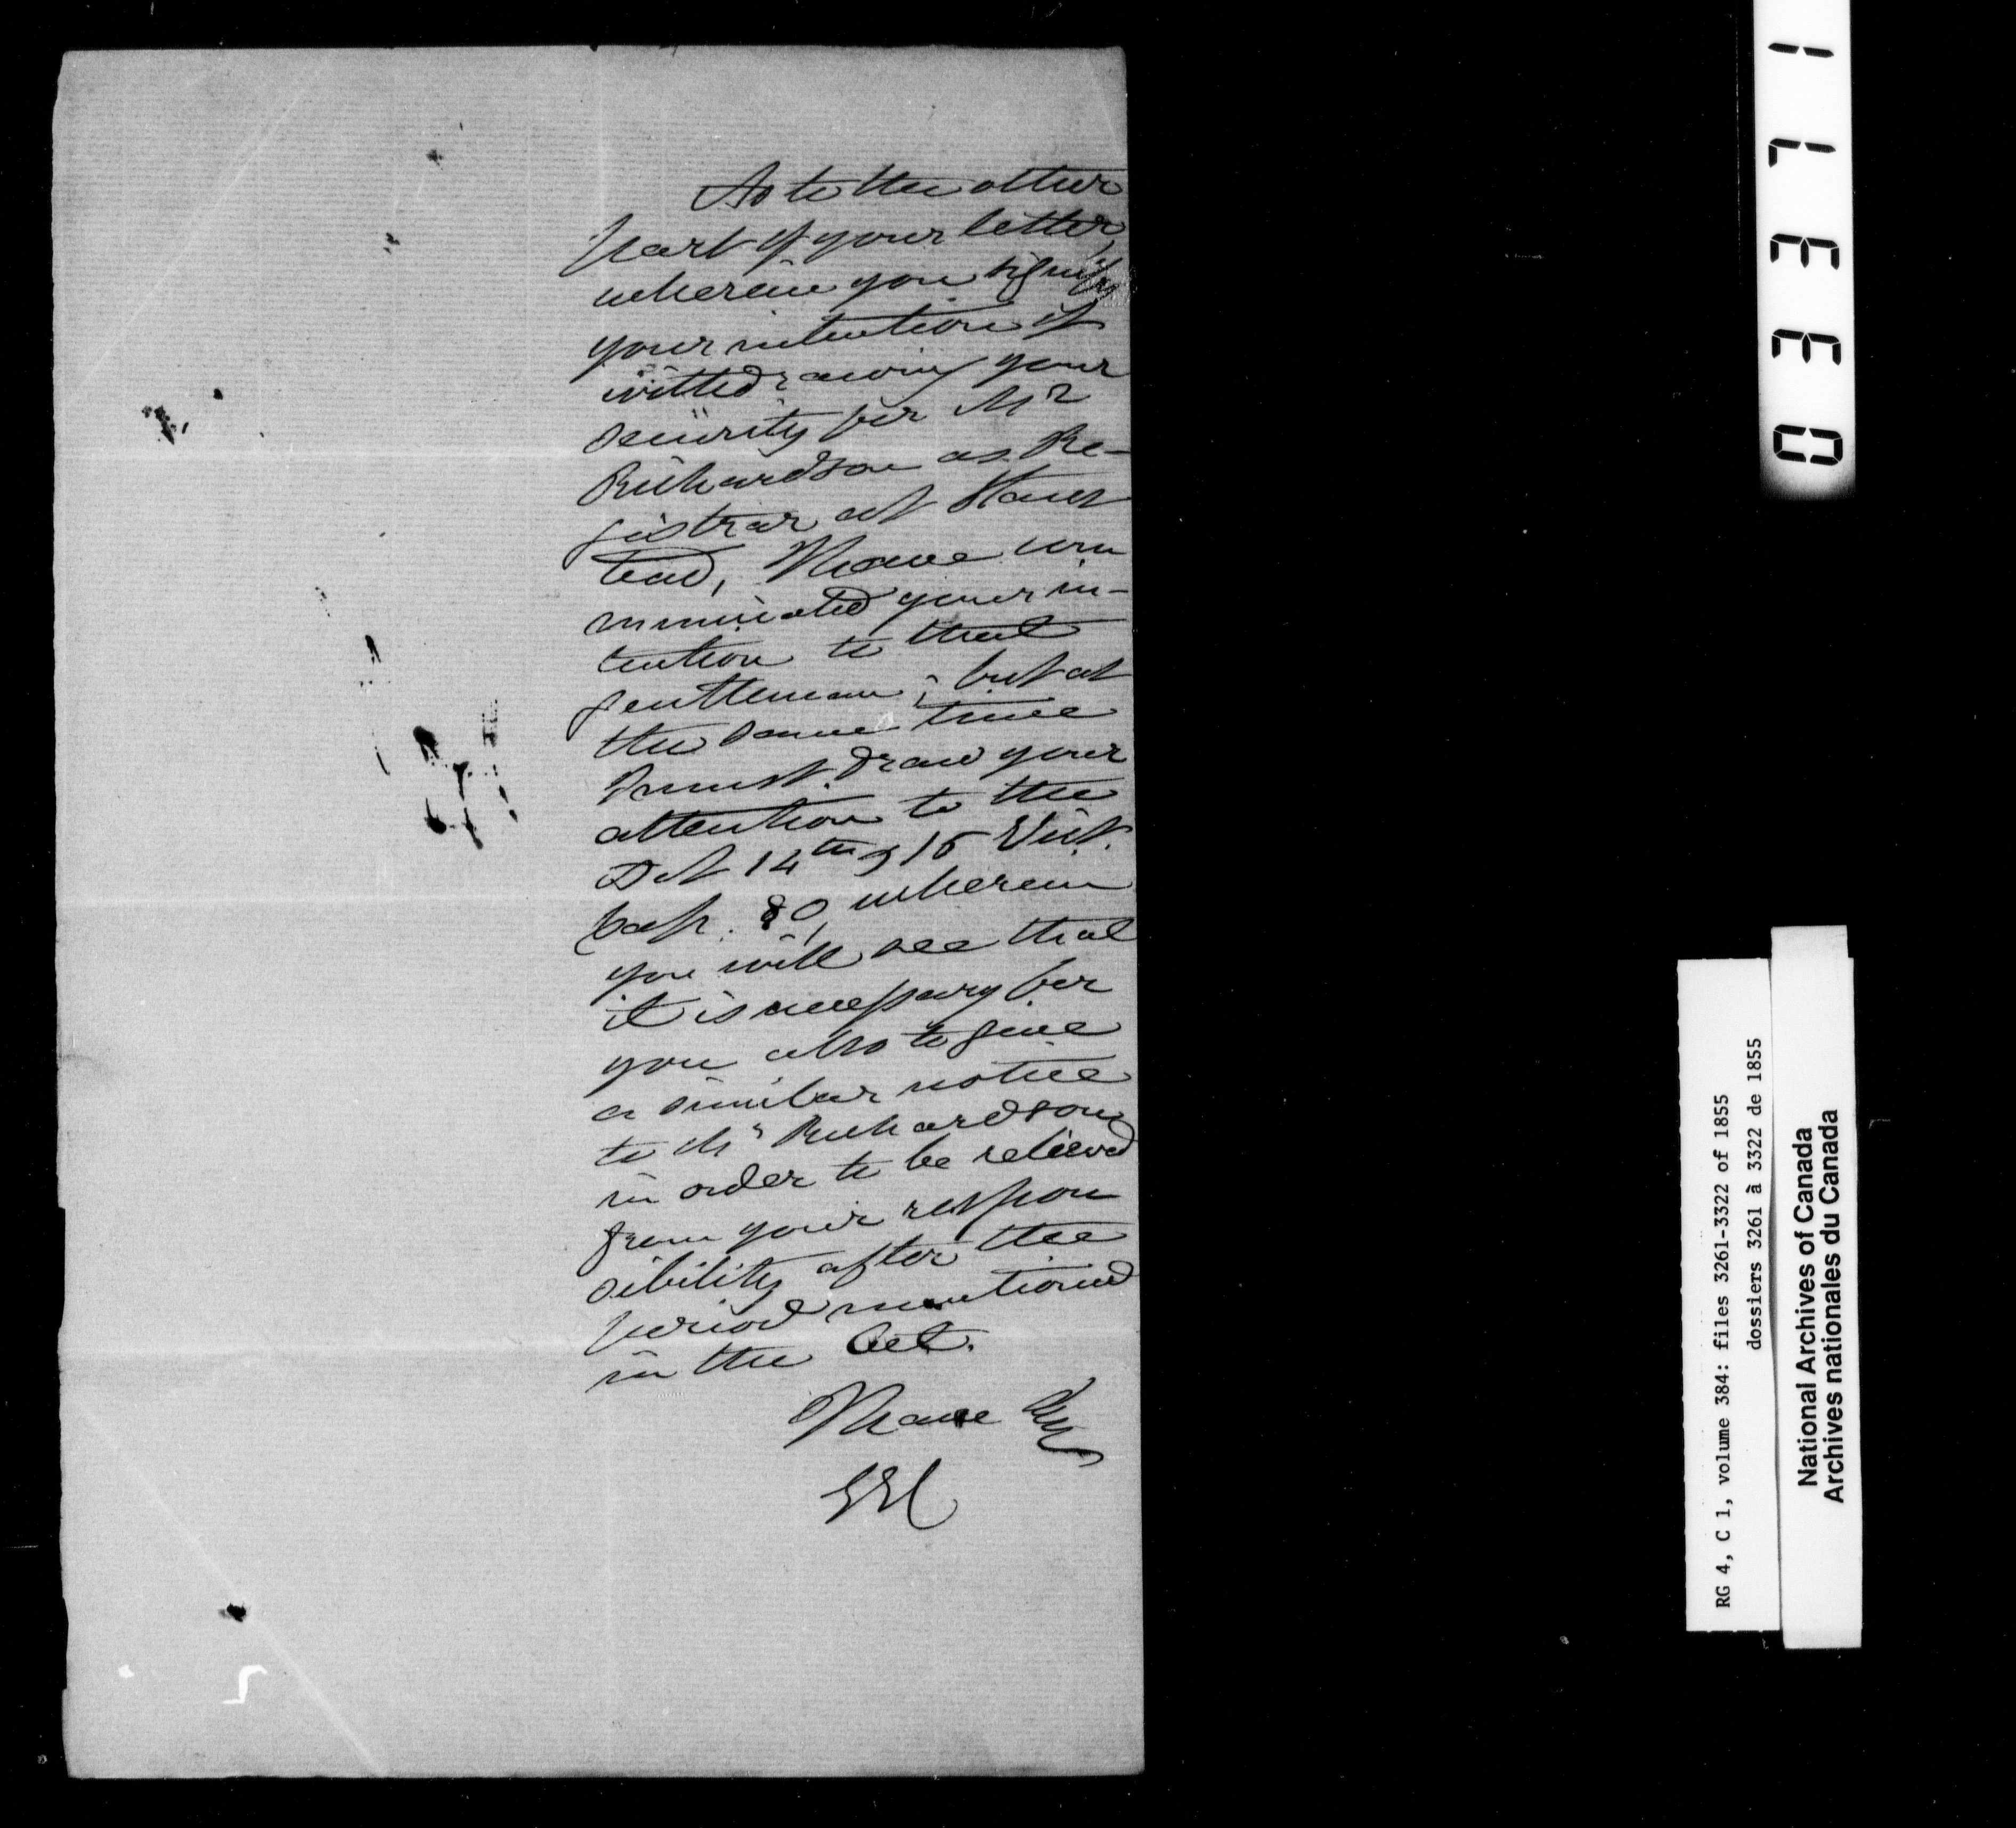 As to the other
part of your letter,
wherein you signify
your intention of
withdrawing your
security for Mr
Richardson as Re-
gistrar at Stans
tead, I have com
municated your in-
tention to that
gentleman; but at
the same time
I must draw your
attention to the
Act 14th & 15 Vict.
Cap. 80, wherein
you will see that
it is necessary for
you also to give
a similar notice
to Mr Richardson
in order to be relieved
from your respon
sibility after the
period mentioned
in the Act.
I have
03371
RG 4, C 1, volume 384: files 3261-3322 of 1855
dossiers 3261 à 3322 de 1855
National Archives of Canada
Archives nationales du Canada